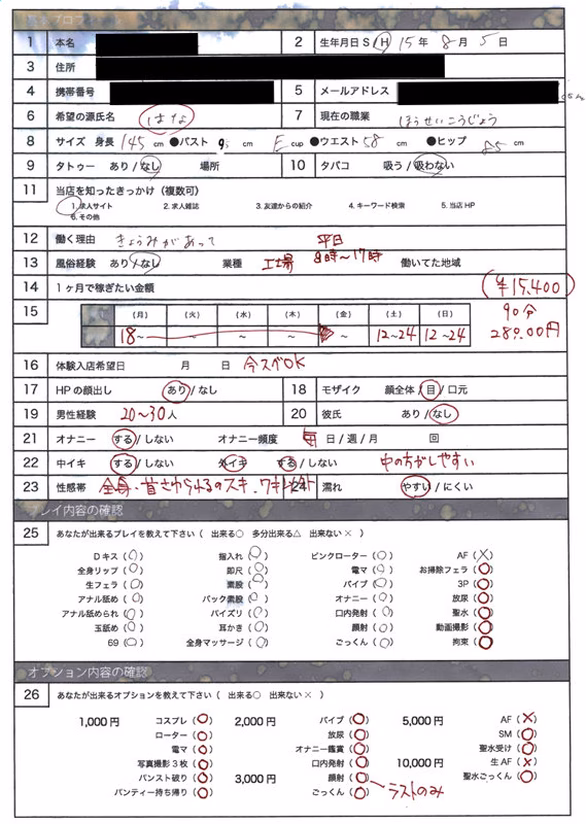 基本プロフィール
1 本名 2 生年月日 S / H 15 年 8 月 5 日
3 住所
4 携帯番号 5 メールアドレス
6 希望の源氏名 はな 7 現在の職業 ほうせいこうじょう
8 サイズ 身長 145 cm ●バスト cm E cup ●ウエスト 58 cm ●ヒップ 85 cm
9 タトゥー あり / なし 場所 10 タバコ 吸う / 吸わない
11 当店を知ったきっかけ（複数可）
1. 求人サイト 2. 求人雑誌 3. 友達からの紹介 4. キーワード検索 5. 当店 HP
6. その他
12 働く理由 きょうみがあって 平日
13 風俗経験 あり / なし 業種 工場 8時〜17時 働いてた地域
14 1ヶ月で稼ぎたい金額 (¥15,400)
15 （月） （火） （水） （木） （金） （土） （日） 90分
18〜 〜 〜 〜 〜 12〜24 12〜24 28000円
16 体験入店希望日 月 日 今スぐOK
17 HPの顔出し あり / なし 18 モザイク 顔全体 / 目 / 口元
19 男性経験 20〜30 人 20 彼氏 あり / なし
21 オナニー する / しない オナニー頻度 毎 日 / 週 / 月 回
22 中イキ する / しない 外イキ する / しない 中の方がしやすい
23 性感帯 全身・首さわられるのスキ. 24 濡れ やすい / にくい
プレイ内容の確認
25 あなたが出来るプレイを教えて下さい（ 出来る○ 多分出来る△ 出来ない× ）
Dキス（○） 指入れ（○） ピンクローター（○） AF（×）
全身リップ（○） 即尺（○） 電マ（○） お掃除フェラ（○）
生フェラ（○） 素股（○） バイブ（○） 3P（○）
アナル舐め（○） バック素股（○） オナニー（○） 放尿（○）
アナル舐められ（○） パイズリ（○） 口内発射（○） 聖水（○）
玉舐め（○） 耳かき（○） 顔射（○） 動画撮影（○）
69（○） 全身マッサージ（○） ごっくん（○） 拘束（○）
オプション内容の確認
26 あなたが出来るオプションを教えて下さい（ 出来る○ 出来ない× ）
1,000円 コスプレ（○） 2,000円 バイブ（○） 5,000円 AF（×）
ローター（○） 放尿（○） SM（○）
電マ（○） オナニー鑑賞（○） 聖水受け（○）
写真撮影3枚（○） 口内発射（○） 10,000円 生AF（×）
パンスト破り（○） 3,000円 顔射（○） 聖水ごっくん（○）
パンティー持ち帰り（○） ごっくん（○） ラストのみ